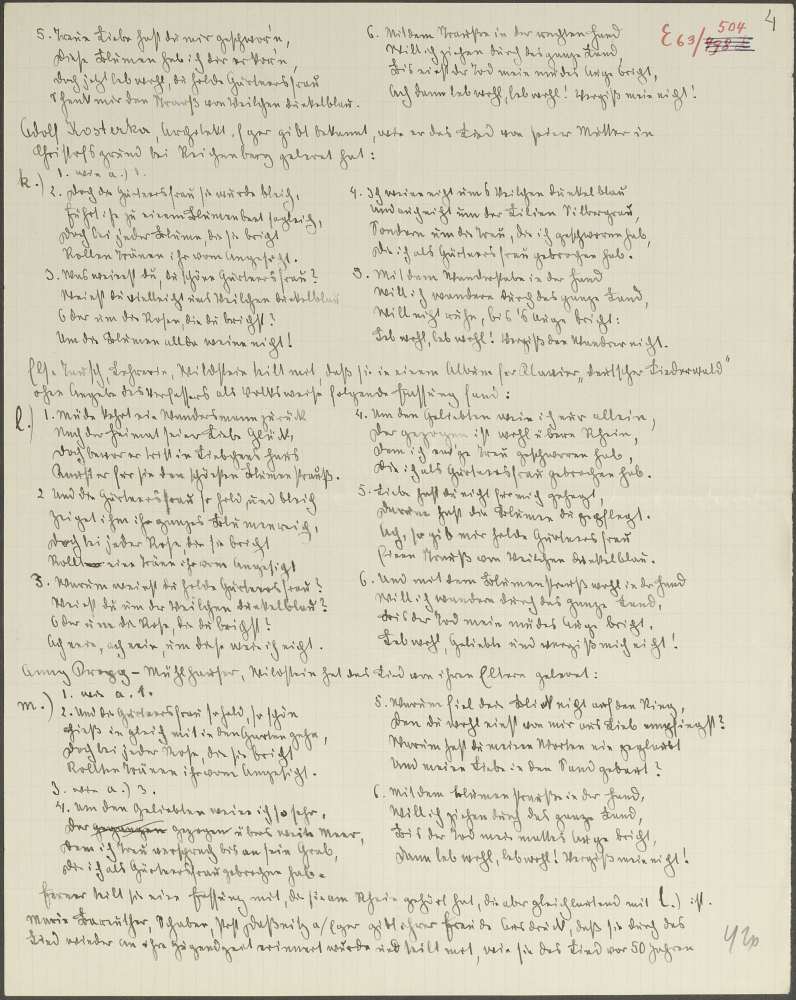 4
E 63/504
5. Treue Liebe hast du mir geschwor'n,
Diese Blumen hab ich dir erkor'n,
Doch jetzt leb wohl, du holde Gärtnersfrau
Schenk mir den Strauß von Veilchen dunkelblau.
6. Mit dem Strauße in der rechten Hand
Will ich ziehen durch das ganze Land
Bis einst der Tod mein müdes Auge bricht,
Ach dann leb wohl, leb wohl! Vergiß mein nicht!
Adolf Kosterka, Architekt, Eger gibt bekannt, wie er das Lied von seiner Mutter in
Christofsgrund bei Reichenberg gelernt hat:
k.) 1. wie a.) 1.
2. Doch die Gärtnersfrau sie wurde bleich,
Führt ihn zu einem Blumenbeet sogleich,
Doch bei jeder Blume, die sie bricht
Rollen Tränen ihr vom Angesicht.
3. Was weinest du, du schöne Gärtnersfrau?
Weinst du vielleicht ums Veilchen dunkelblau
Oder um die Rosen, die du brichst?
Um die Blumen alle da weine nicht!
4. Ich weine nicht ums Veilchen dunkelblau
Und auch nicht um der Lilien Silbergrau,
Sondern um die Treu, die ich geschworen hab,
Die ich als Gärtnersfrau gebrochen hab.
5. Mit dem Wanderstabe in der Hand
Will ich wandern durch das ganze Land,
Will nicht ruhn, bis 's Auge bricht:
Leb wohl, leb wohl! Vergiß den Wandrer nicht.
Else Tausch, Lehrerin, Wildstein teilt mit, daß sie in einem Album für Klavier „Deutscher Liederwald"
ohne Angabe des Verfassers als Volksweise folgende Fassung fand:
l.) 1. Müde kehrt ein Wandersmann zurück
Nach der Heimat seiner Liebe Glück,
Doch bevor er tritt in Liebchens Haus
Kauft er für sie den schönsten Blumenstrauß.
2 Und die Gärtnersfrau so hold und bleich
Zeiget ihm ihr ganzes Blumenreich,
Doch bei jeder Rose, die sie bricht
Rollt eine Träne ihr vom Angesicht
3. Warum weinst du holde Gärtnersfrau?
Weinst du um der Veilchen dunkelblau?
Oder um die Rose, die du brichst?
Ach nein, ach nein, um diese wein ich nicht.
4. Um den Geliebten wein ich nur allein,
Der gezogen ist wohl übern Rhein,
Dem ich ew'ge Treu geschworen hab,
Die ich als Gärtnersfrau gebrochen hab.
5. Liebe hast du nicht für mich gehegt,
Darum hast die Blumen du gepflegt.
Ach, so gib mir holde Gärtnersfrau
Einen Strauß von Veilchen dunkelblau.
6. Und mit dem Blumenstrauß wohl in der Hand
Will ich wandern durch das ganze Land,
Bis der Tod mein müdes Auge bricht.
Leb wohl, Geliebte und vergiß mich nicht!
Anny Propp - Mühlhauser, Wildstein hat das Lied von ihren Eltern gelernt:
m.) 1. wie a. 1.
2. Und die Gärtnersfrau so hold, so schön
Hieß ihn gleich mit in den Garten gehn,
Doch bei jeder Rose, die sie bricht
Rollten Tränen ihr vom Angesicht.
3. wie a.) 3.
4. Um den Geliebten weine ich so sehr,
Der gezogen übers weite Meer,
Dem ich Treu versprach bis an sein Grab,
Die ich als Gärtnersfrau gebrochen hab.
5. Warum fiel dein Blick nicht auf den Ring,
Den du wohl einst von mir aus Lieb empfingst?
Warum hast du meinen Worten nie geglaubt
Und meine Liebe in den Sand gebaut?
6. Mit dem Blumenstrauße in der Hand,
Will ich ziehen durch das ganze Land,
Bis der Tod mein mattes Auge bricht,
Dann leb wohl, leb wohl! Vergiß mein nicht!
Ferner teilt sie eine Fassung mit, die sie am Rhein gehört hat, die aber gleichlautend mit l.) ist.
Marie Bareuther, Schaben, Post Daßnitz a/Eger gibt ihrer Freude Ausdruck, daß sie durch das
Lied wieder an ihre Jugendzeit erinnert wurde und teilt mit, wie sie das Lied vor 50 Jahren